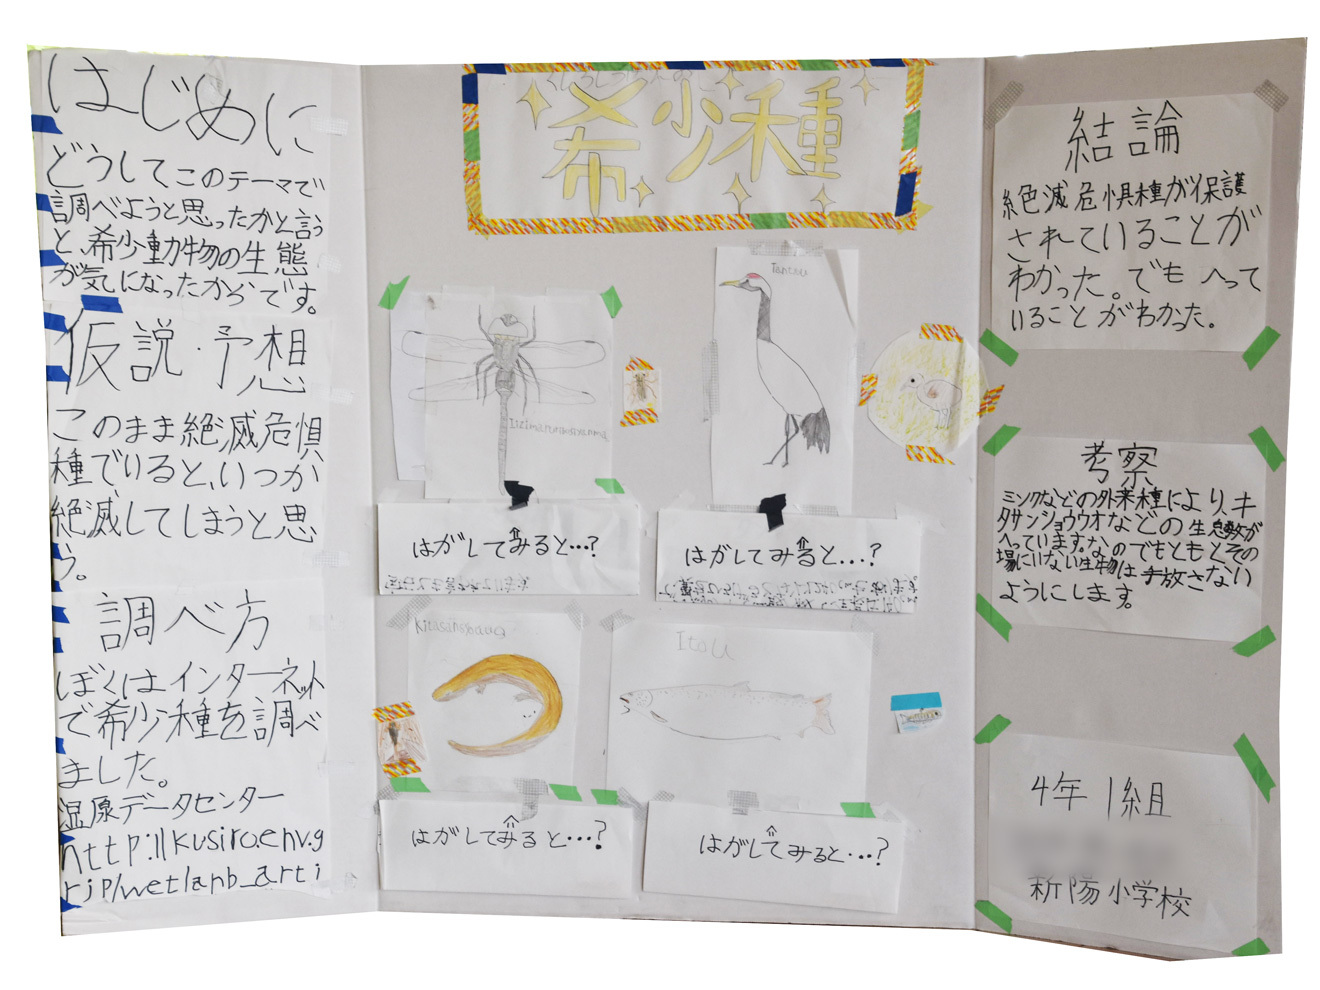 はじめに
どうしてこのテーマで
調べようと思ったかと言う
と、希少動物の生態
が気になったからです。
仮説・予想
このまま絶滅危惧
種でいると、いつか
絶滅してしまうと思
う。
調べ方
ぼくはインターネット
で希少種を調べ
ました。
湿原データセンター
http://kusiro.env.g
r.jp/wetlanb_arti
希少種
Tantou
はがしてみると…?
はがしてみると…?
Itou
はがしてみると…?
はがしてみると…?
結論
絶滅危惧種が保護
されていることが
わかった。でも へって
いることがわかった。
考察
ミンクなどの外来種により、キ
タサンショウウオなどの生息数が
へっています。なのでもともとその
場にいない生物は手放さない
ようにします。
4年1組
新陽小学校